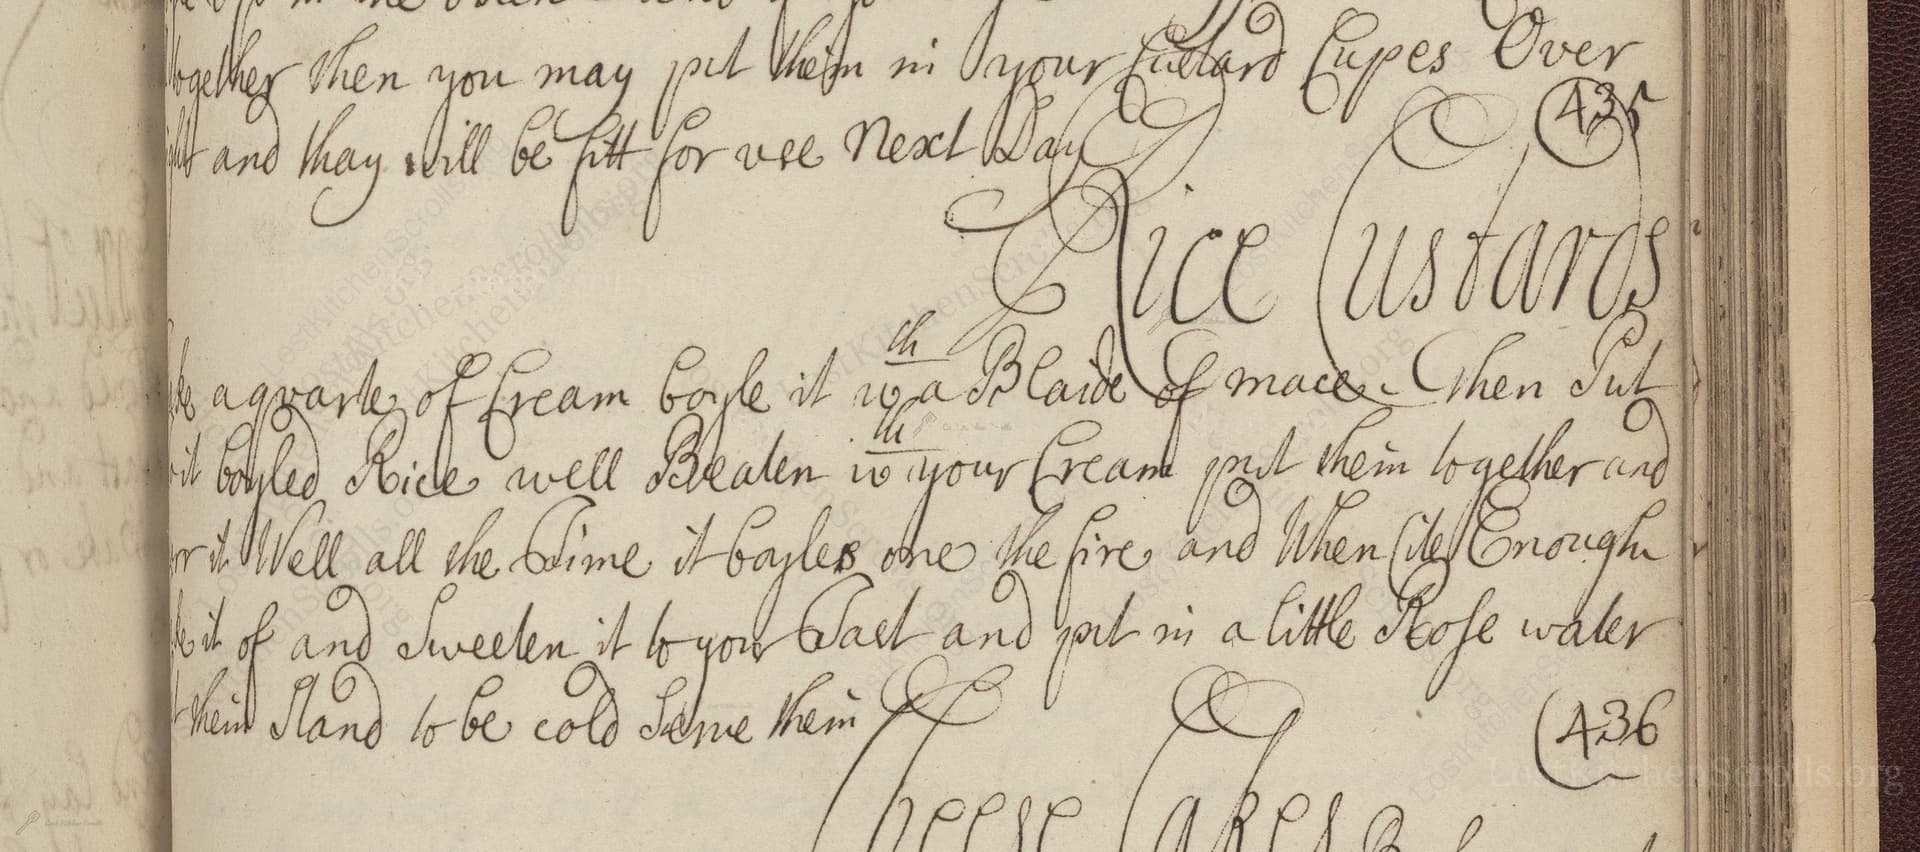 together then you may put them in your Custard Cupes Over
and thay will be fitt for vse Next Day
435
Rice Custards
a qvarte of Cream boyle it wth a Blaide of mace Then Put
it boyled Rice well Beaten wth your Cream put them together and
it Well all the Time it boyles one the fire and When its Enough
it of and Sweeten it to your Tast and put in a little Rose water
them Stand to be cold Serve them
436
Cheese Cakes
LostKitchenScrolls.org